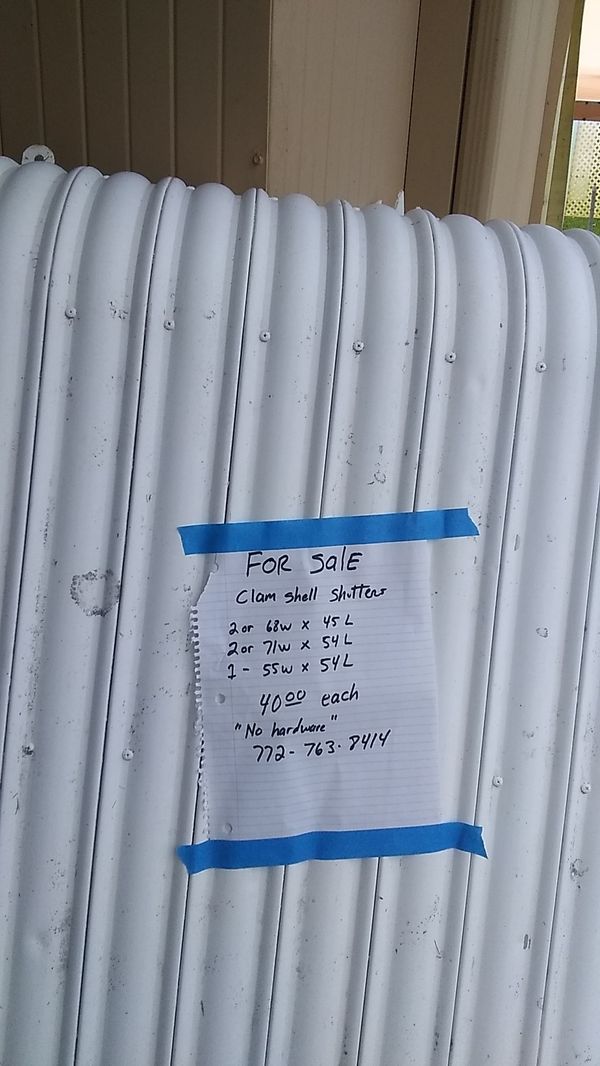 FOR SalE
Clam shell shutters
2 or 68w x 45 L
2 or 71w x 54 L
1 - 55w x 54 L
40 00 each
"No hardware"
772- 763- 8414